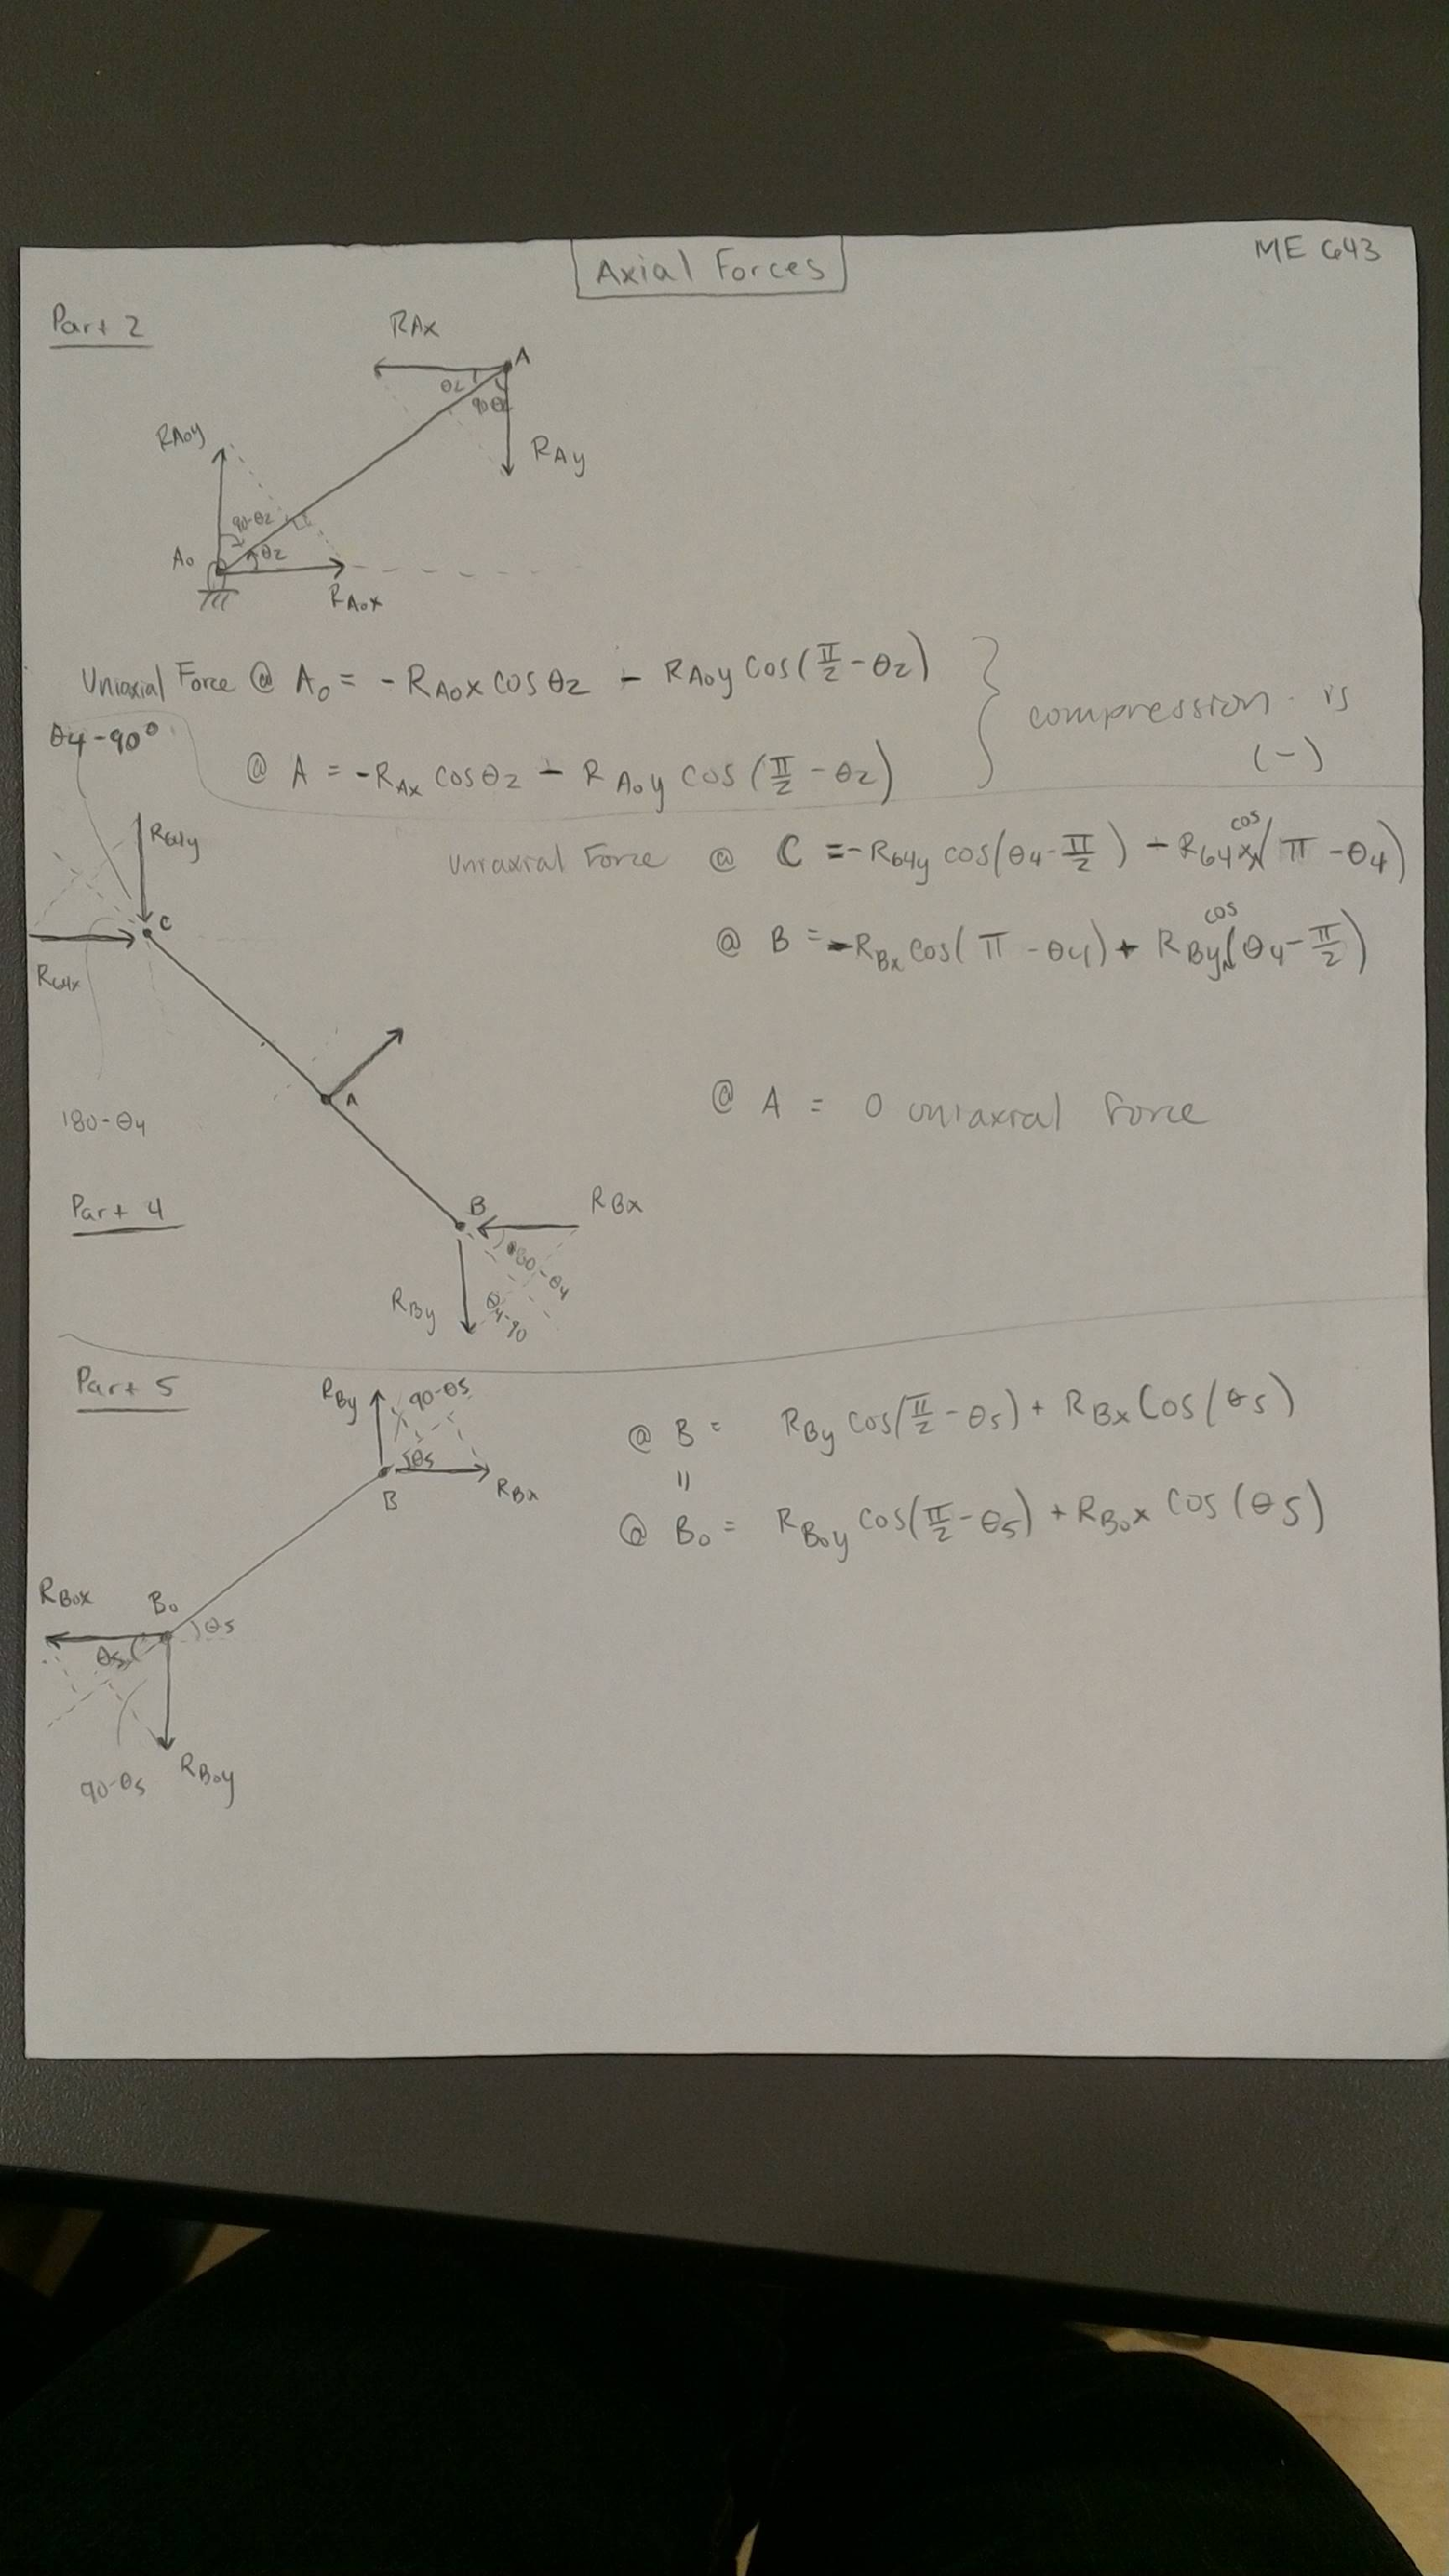 Axial Forces
ME 643
Part 2
RAx
A
θ2
90-θ2
RAy
RAoy
90-θ2
θ2
Ao
RAox
Uniaxial Force @ Ao = - RAox cos θ2 - RAoy cos(π/2 - θ2)
@ A = -RAx cosθ2 - RAoy cos(π/2 - θ2)
compression is
(-)
θ4-90°
R64y
C
R64x
180-θ4
A
Part 4
B
RBx
180-θ4
RBy
θ4-90
Uniaxial Force @ C = -R64y cos(θ4-π/2) - R64x cos(π-θ4)
@ B = -RBx cos(π-θ4) + RBy cos(θ4-π/2)
@ A = 0 uniaxial force
Part 5
RBy
90-θ5
θ5
RBx
B
RBox
Bo
θ5
θ5
90-θ5
RBoy
@ B = RBy cos(π/2 - θ5) + RBx Cos(θ5)
=
@ Bo = RBoy cos(π/2 - θ5) + RBox cos(θ5)